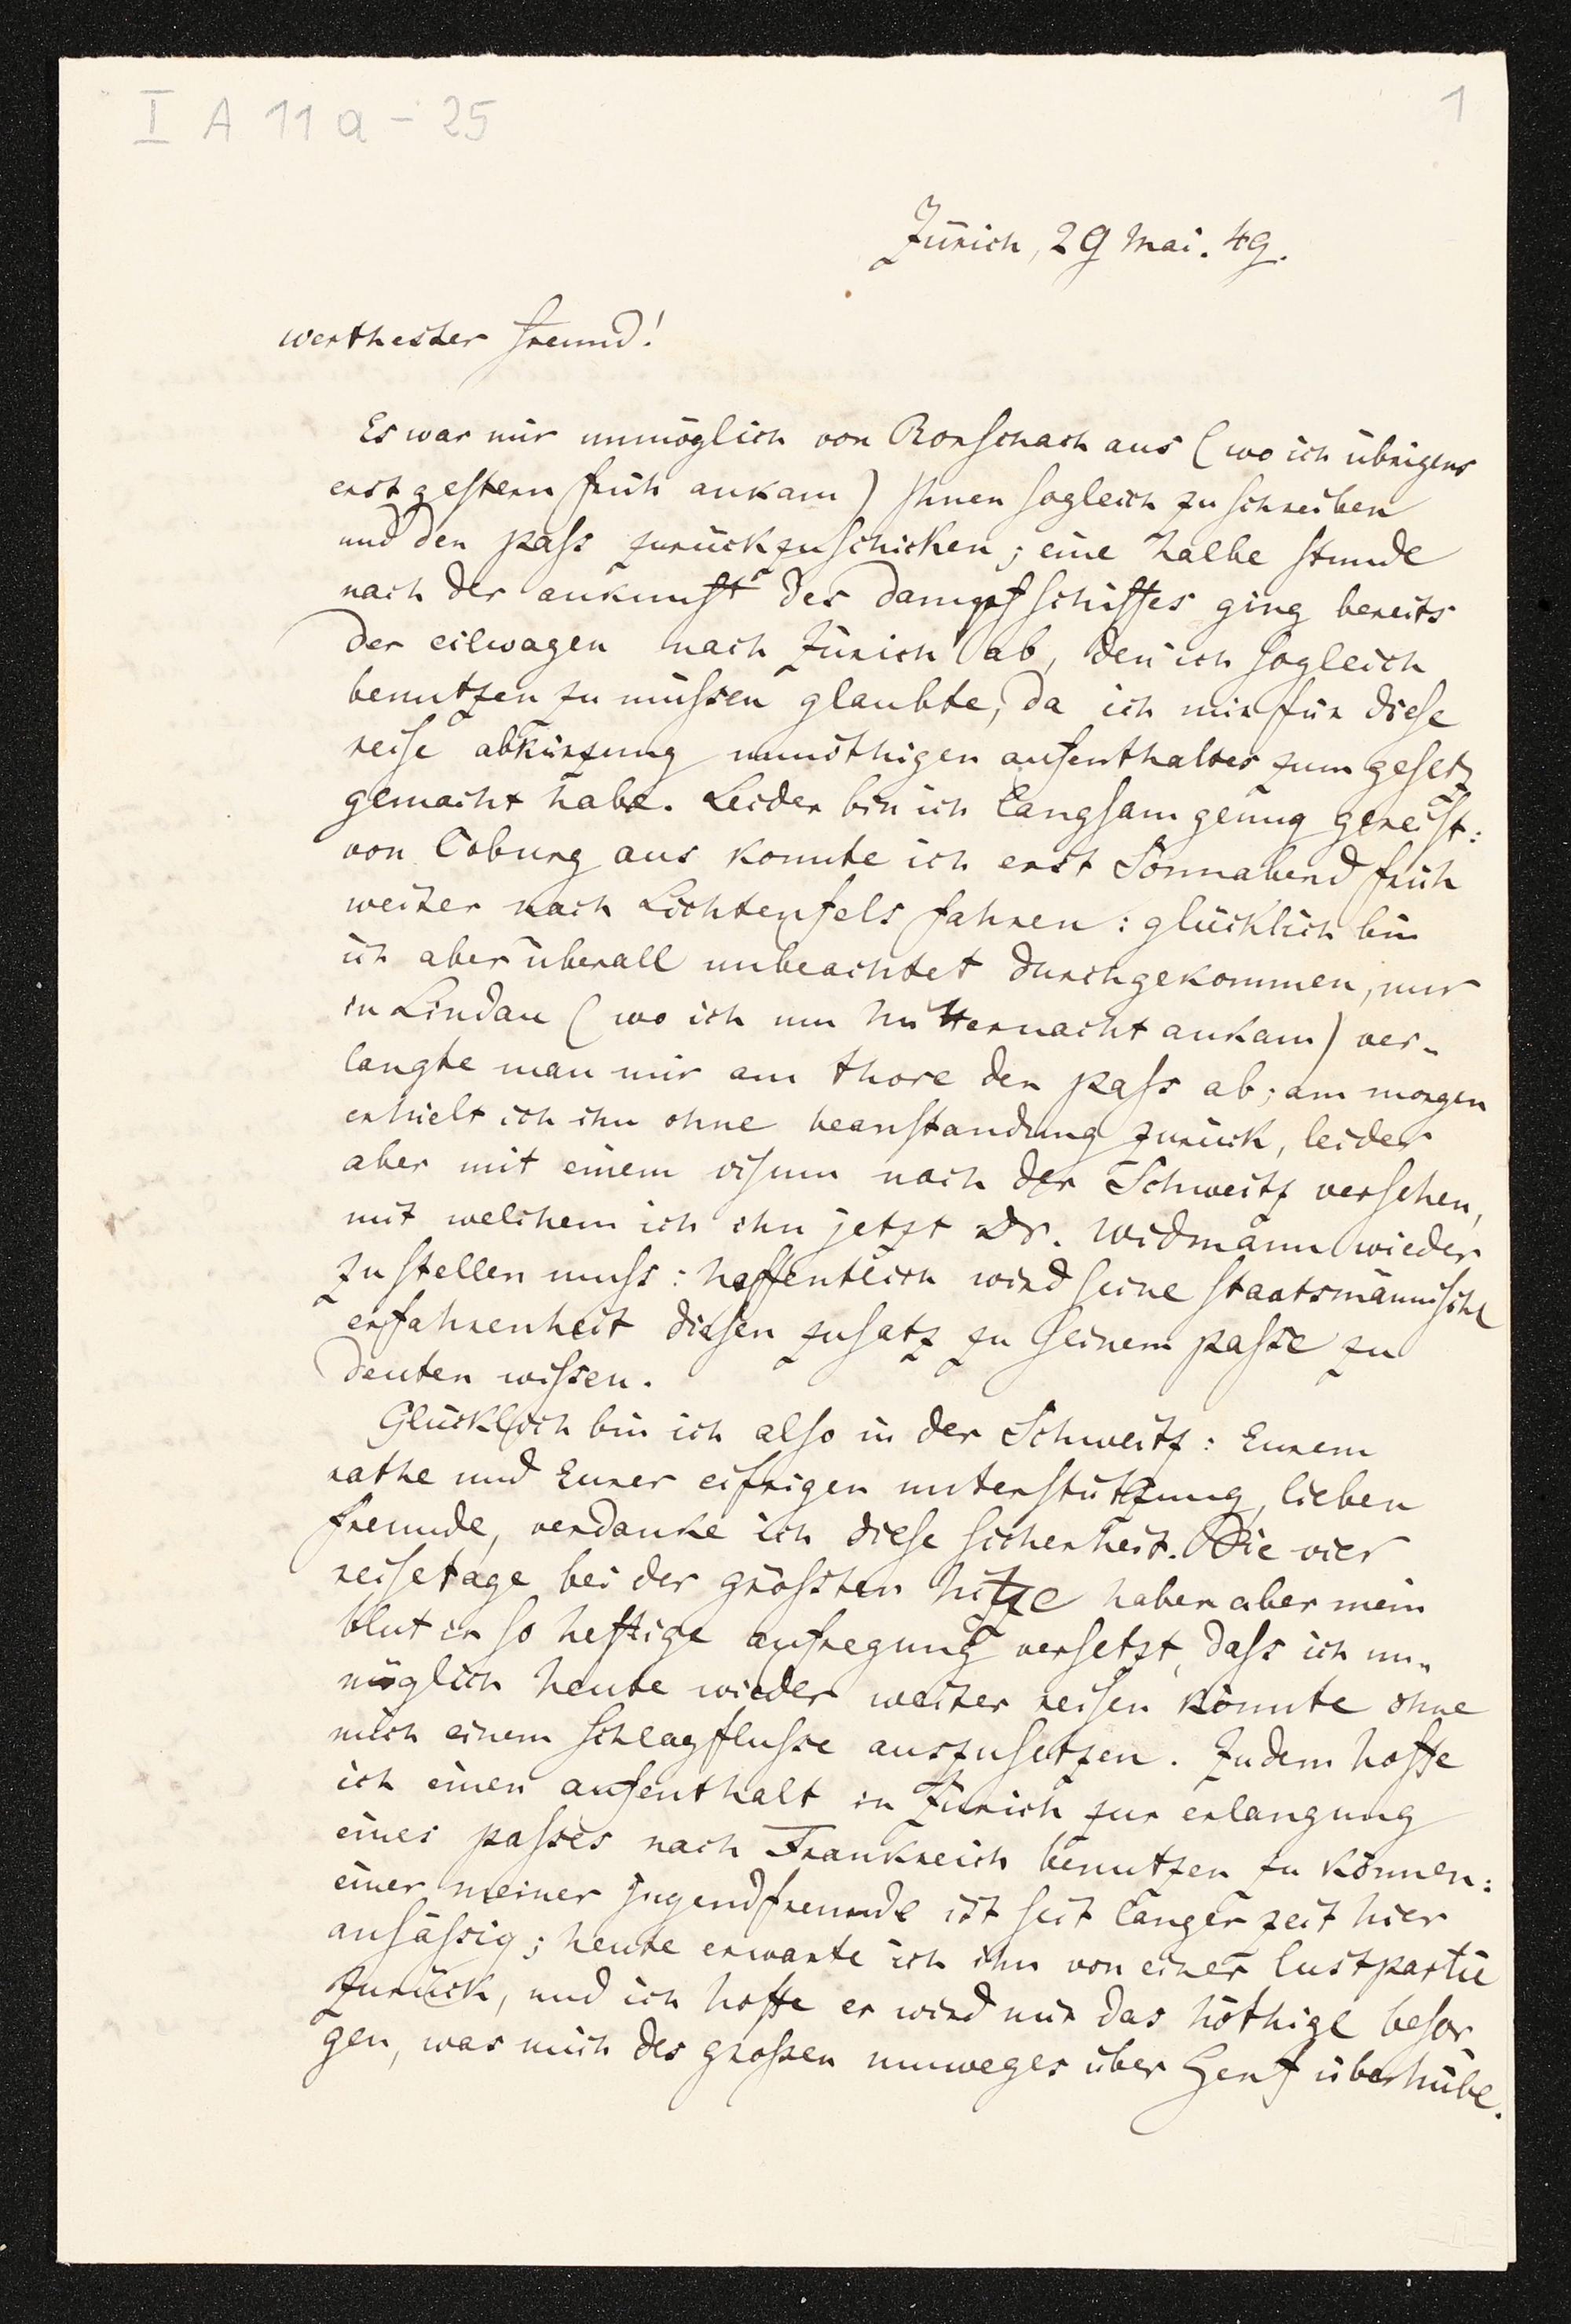 I A 11 a - 25
1
Zürich, 29 Mai. 49.
werthester freund!
Es war mir unmöglich von Rorschach aus (wo ich übrigens
erst gestern früh ankam) Ihnen sogleich zu schreiben
und den pass zurückzuschicken; eine halbe stunde
nach der ankunft des dampfschiffes ging bereits
der eilwagen nach Zürich ab, den ich sogleich
benutzen zu müssen glaubte, da ich mir für diese
reise abkürzung unnöthigen aufenthaltes zum gesetz
gemacht habe. Leider bin ich langsam genug gereis't:
von Coburg aus konnte ich erst Sonnabend früh
weiter nach Lichtenfels fahren: glücklich bin
ich aber überall unbeachtet durchgekommen, nur
in Lindau (wo ich um Mitternacht ankam) ver-
langte man mir am thore den pass ab; am morgen
erhielt ich ihn ohne beanstandung zurück, leider
aber mit einem visum nach der Schweitz versehen,
mit welchem ich ihn jetzt Dr. Widmann wieder
zustellen muss: hoffentlich wird seine staatsmännische
erfahrenheit diesen zusatz zu seinem passe zu
deuten wissen.
Glücklich bin ich also in der Schweitz: Eurem
rathe und Eurer eifrigen unterstützung, lieben
freunde, verdanke ich diese sicherheit. Die vier
reisetage bei der grössten hitze haben aber mein
blut in so heftige aufregung versetzt, dass ich un-
möglich heute wieder weiter reisen könnte ohne
mich einem schlagflusse auszusetzen. Zudem hoffe
ich einen aufenthalt in Zürich zur erlangung
eines passes nach Frankreich benutzen zu können:
einer meiner jugendfreunde ist seit langer zeit hier
ansässig; heute erwarte ich ihn von einer lustpartie
zurück, und ich hoffe er wird mir das nöthige besor
gen, was mich des grossen umweges über Genf überhübe.